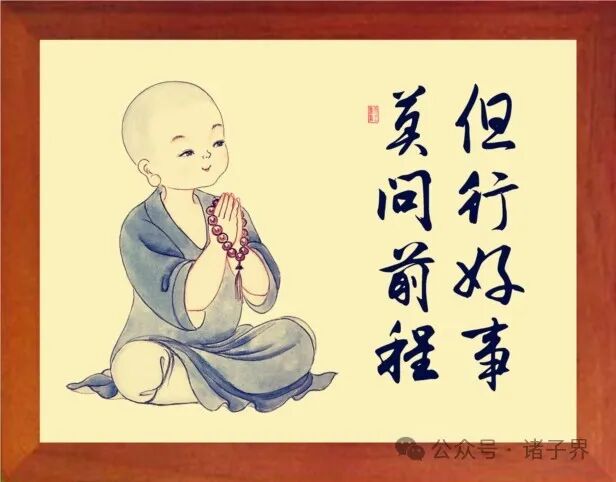 但行好事
莫问前程
公众号·诸子界